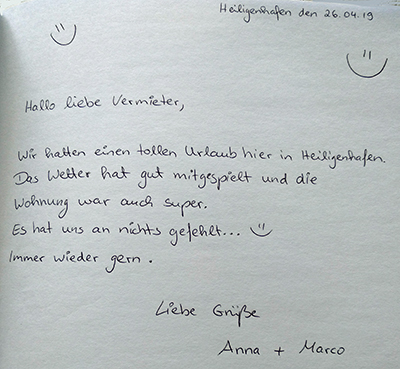 Heiligenhafen den 26.04.19
Hallo liebe Vermieter,
Wir hatten einen tollen Urlaub hier in Heiligenhafen.
Das Wetter hat gut mitgespielt und die
Wohnung war auch super.
Es hat uns an nichts gefehlt...
Immer wieder gern.
Liebe Grüße
Anna + Marco